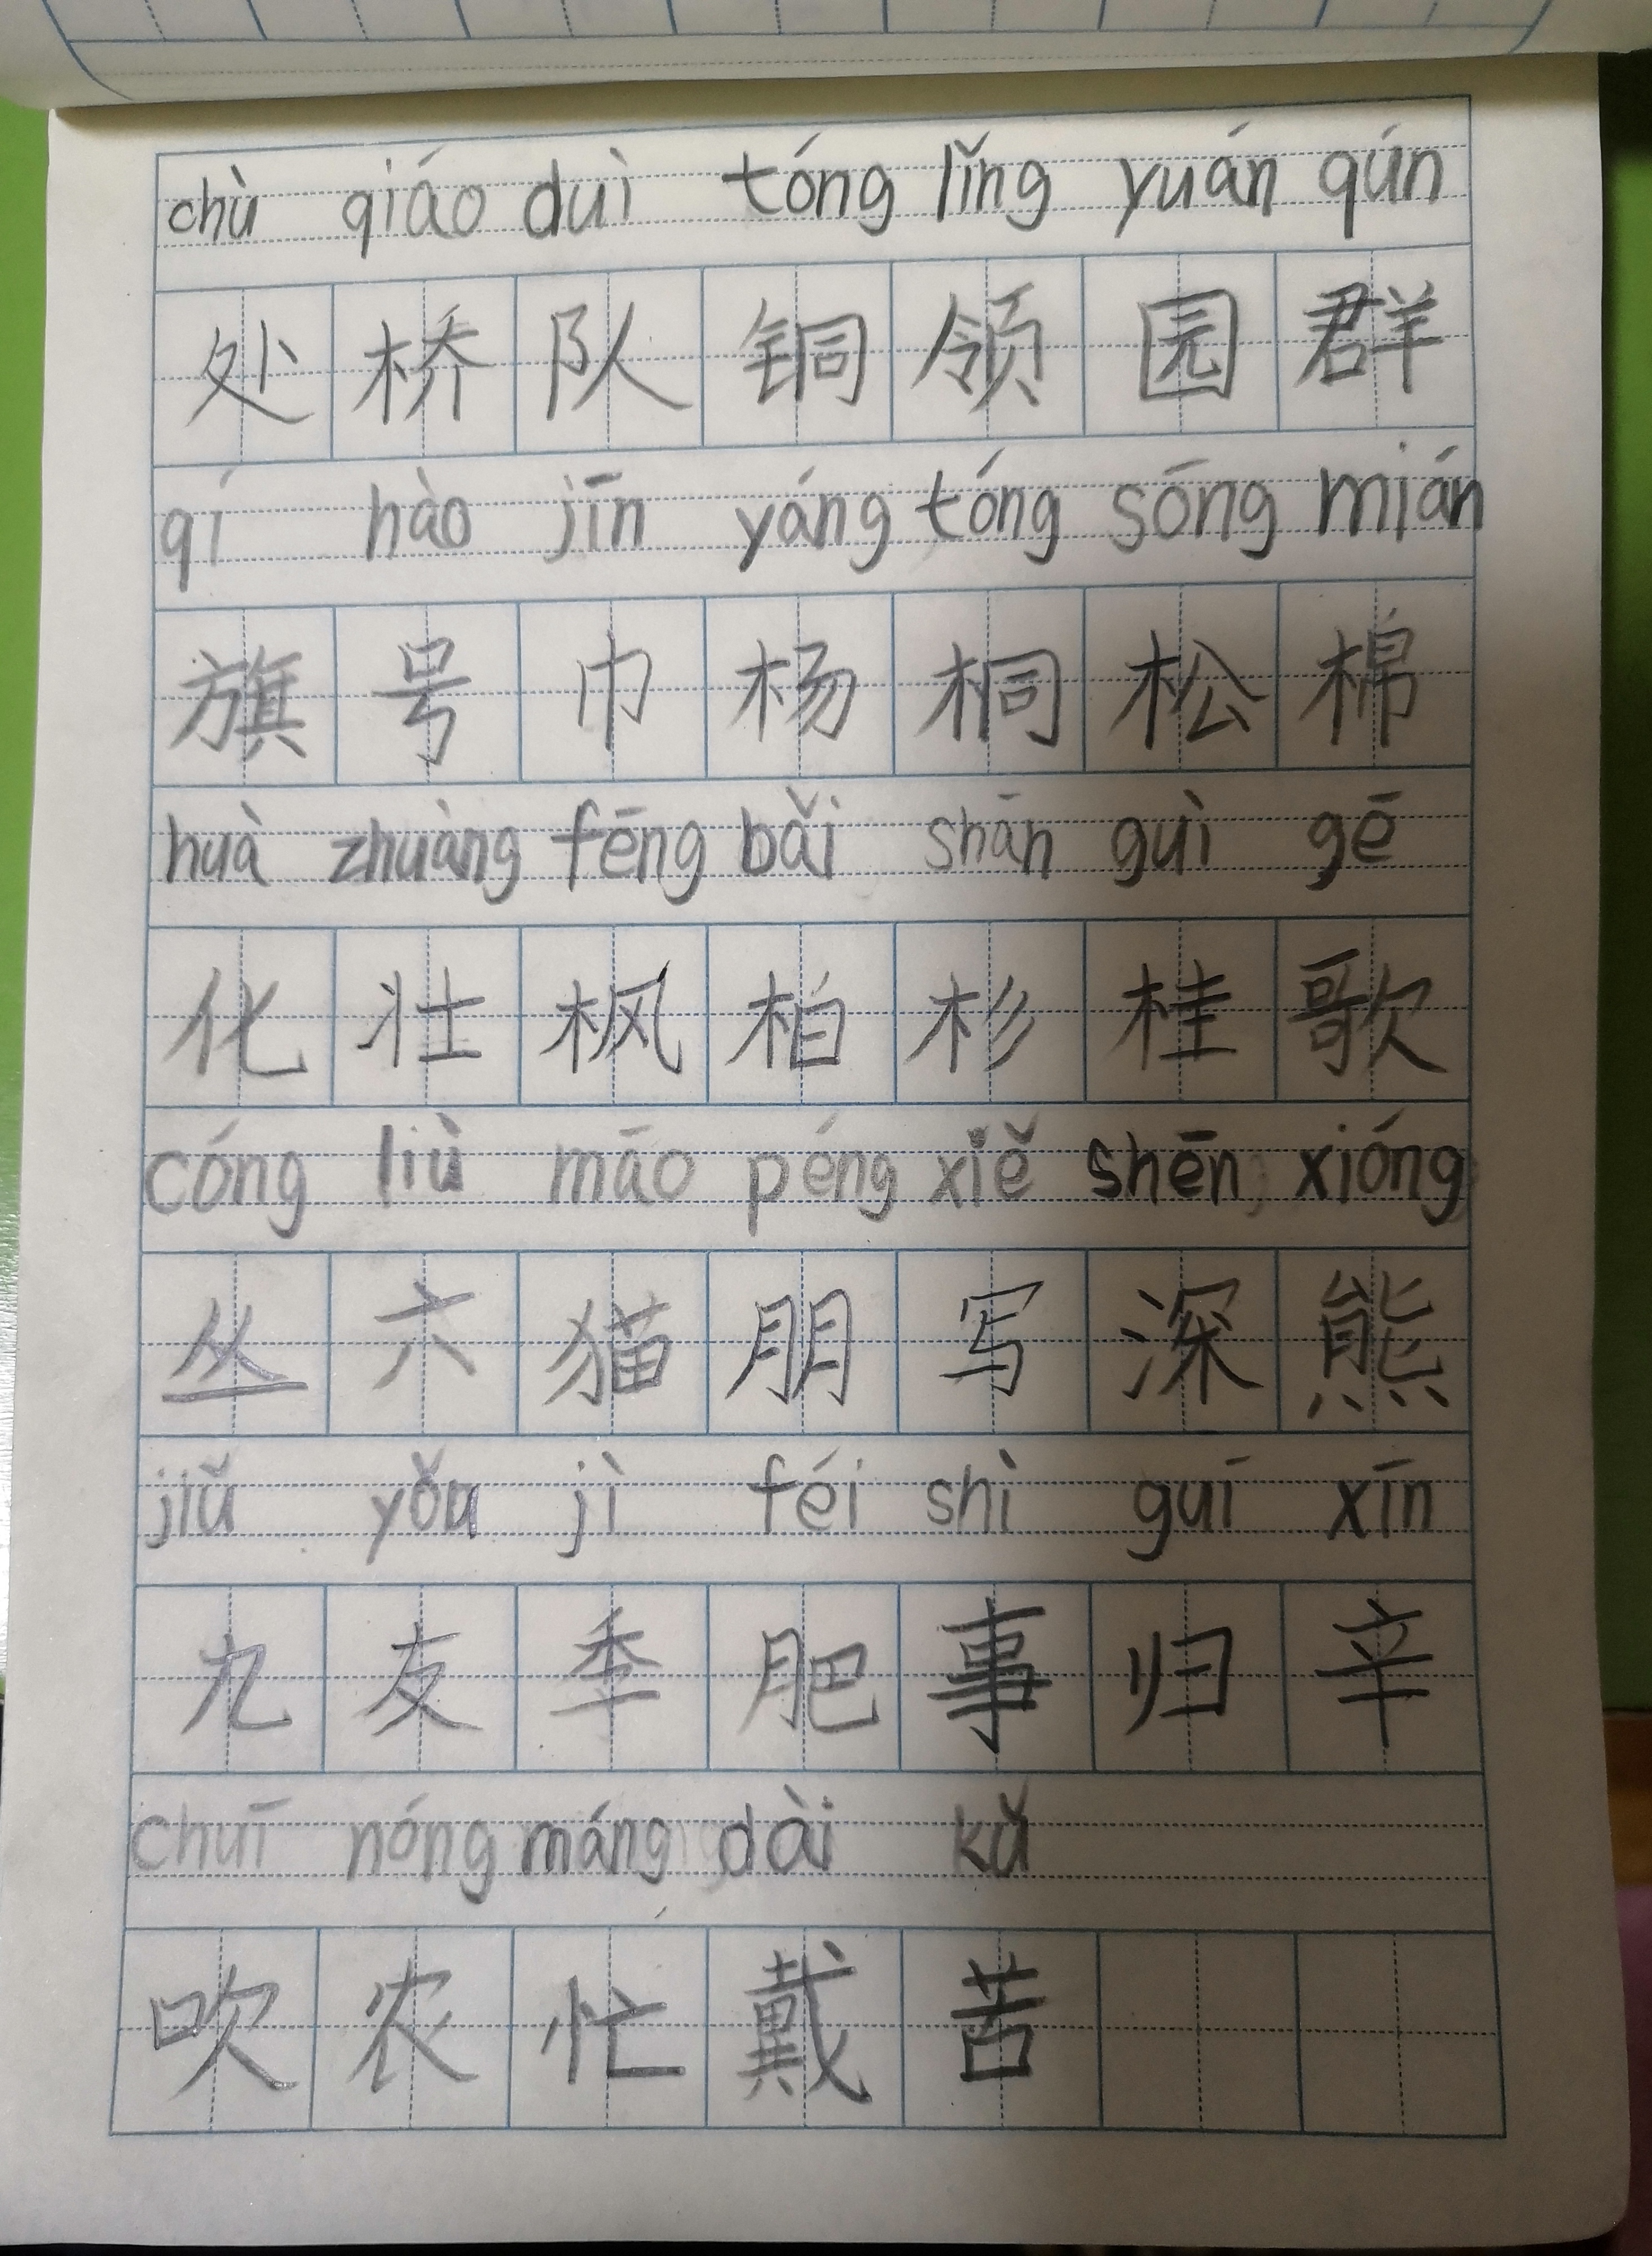 chù qiáo duì tóng lǐng yuán qún
处 桥 队 铜 领 园 群
qí hào jīn yáng tóng sōng mián
旗 号 巾 杨 桐 松 棉
huà zhuàng fēng bǎi shān guì gē
化 壮 枫 柏 杉 桂 歌
cóng liù māo péng xiě shēn xióng
丛 六 猫 朋 写 深 熊
jiǔ yǒu jì féi shì guī xīn
九 友 季 肥 事 归 辛
chuī nóng máng dài kǔ
吹 农 忙 戴 苦